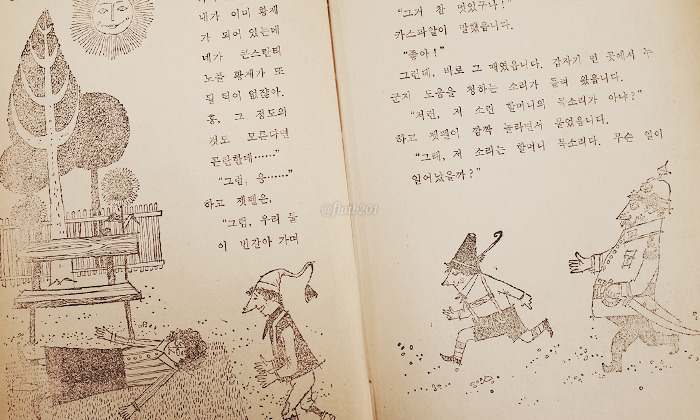 네가 이미 황제
가 되어 있는데
네가 콘스탄티
노플 황제가 또
될 턱이 없잖아.
흥, 그 정도의
것도 모른다면
곤란한데……”
“그럼, 응……”
하고 젯펜은,
“그럼, 우리 둘
이 번갈아 가며
“그거 참 멋있구나!”
카스파알이 말했읍니다.
“좋아!”
그런데, 바로 그 때였읍니다. 갑자기 먼 곳에서 누
군지 도움을 청하는 소리가 들려 왔읍니다.
“저런, 저 소린 할머니의 목소리가 아냐?”
하고 젯펜이 깜짝 놀라면서 물었읍니다.
“그래, 저 소리는 할머니 목소리다. 무슨 일이
일어났을까?”
@flatb201